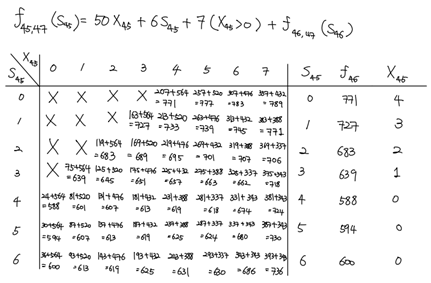 f45,47 (S45) = 50X45 + 6S45 + 7(X45>0) + f46,47 (S46)
X45 S45 0 1 2 3 4 5 6 7 S45 f45 X45
0 X X X X 207+564 257+520 307+476 357+432 0 771 4
=771 =777 =783 =789
1 X X X 163+564 213+520 263+476 313+432 363+388 1 727 3
=727 =733 =739 =745 =771
2 X X 119+564 169+520 219+476 269+432 319+388 369+337 2 683 2
=683 =689 =695 =701 =707 =706
3 X 75+564 125+520 175+476 225+432 275+388 325+337 375+343 3 639 1
=639 =645 =651 =657 =663 =662 =718
4 24+564 81+520 131+476 181+432 231+388 281+337 331+343 381+343 4 588 0
=588 =601 =607 =613 =619 =618 =674 =724
5 30+564 87+520 137+476 187+432 237+388 287+337 337+343 387+343 5 594 0
=594 =607 =613 =619 =625 =624 =680 =730
6 36+564 93+520 143+476 193+432 243+388 293+337 343+343 393+343 6 600 0
=600 =613 =619 =625 =631 =630 =686 =736